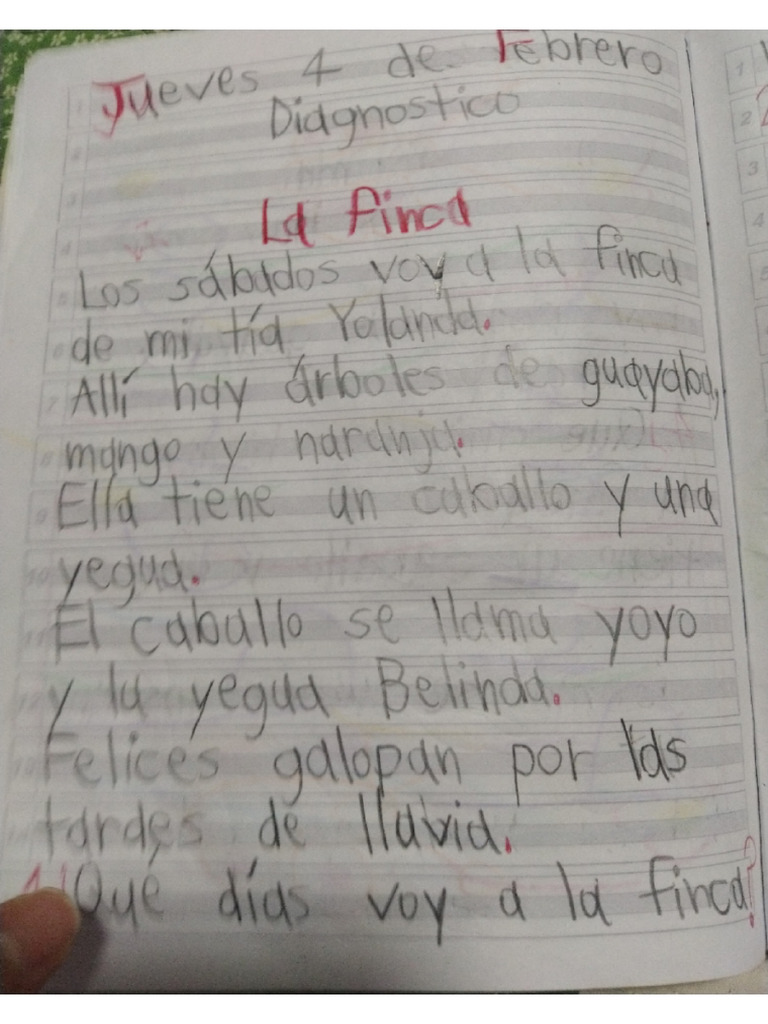 Jueves 4 de Febrero
Diagnostico
La finca
Los sábados voy a la finca
de mi tía Yolanda.
Allí hay árboles de guayaba,
mango y naranja.
Ella tiene un caballo y una
yegua.
El caballo se llama yoyo
y la yegua Belinda.
Felices galopan por las
tardes de lluvia.
¿Qué días voy a la finca?